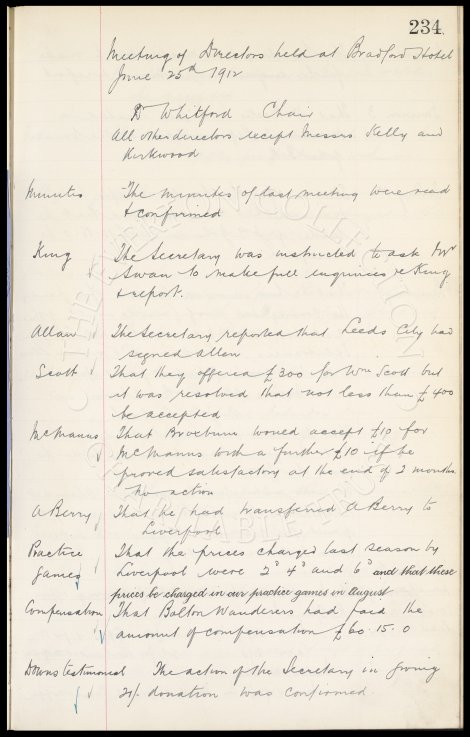 234.
Meeting of Directors held at Bradford Hotel
June 25th 1912
Dr Whitford Chair
All other directors except Messrs Kelly and
Kirkwood
Minutes The minutes of last meeting were read
& confirmed
King The Secretary was instructed to ask Mr
Swan to make full enquiries re King
& report.
Allan The Secretary reported that Leeds City had
signed Allan
Scott That they offered £300 for Wm Scott but
it was resolved that not less than £400
be accepted
McManus That Broxburn would accept £10 for
McManus with a further £10 if he
proved satisfactory at the end of 2 months.
No action
A Berry That he had transferred A Berry to
Liverpool
Practice That the prices charged last season by
games Liverpool were 2d 4d and 6d and that these
prices be charged in our practice games in August
Compensation That Bolton Wanderers had paid the
amount of compensation £60.15.0
Downs testimonial The action of the Secretary in giving
21/- donation was confirmed.
THE EVERTON COLLECTION
CHARITABLE TRUST